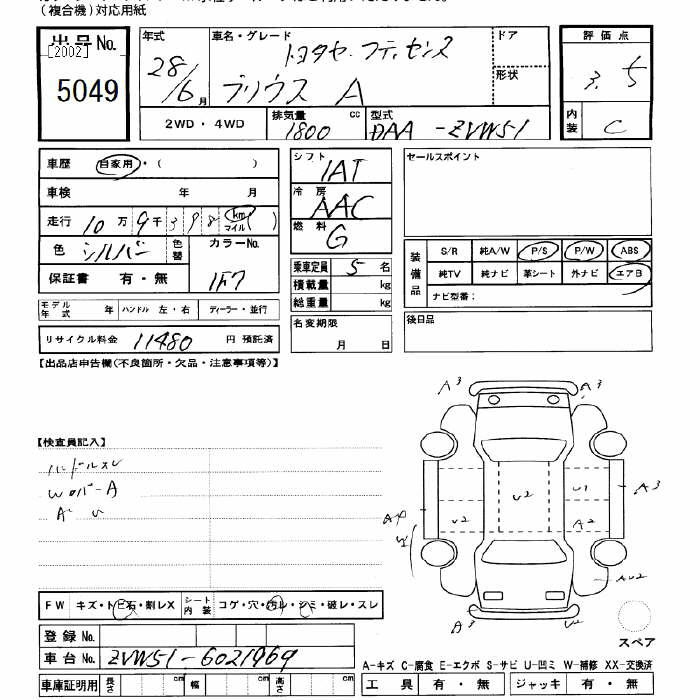 (複合機)対応用紙
出品No.
[2002]
5049
年式
28/
/6月
車名・グレード
トヨタセーフティセンス
プリウス A
ドア
形状
2WD・4WD
排気量 cc
1800
型式
DAA-ZVW51
評価点
3.5
内装
C
車歴 自家用・( )
車検 年 月
走行 10万9千398 km マイル( )
色 シルバー 色替 カラーNo.
保証書 有・無 1F7
モデル年式 年 ハンドル 左・右 ディーラー・並行
リサイクル料金 11480 円 預託済
シフト
IAT
冷房
AAC
燃料
G
乗車定員 5名
積載量 kg
総重量 kg
名変期限
月 日
セールスポイント
装備品
S/R 純A/W P/S P/W ABS
純TV 純ナビ 革シート 外ナビ エアB
ナビ型番:
後日品
【出品店申告欄(不良箇所・欠品・注意事項等)】
【検査員記入】
ハンドルスレ
WロバーA
A U
A3 A3
A3
U2
U1
U2
A2
A4
W
AU2
A3
U
スペア
FW キズ・トビ石・割レX シート内装 コゲ・穴・汚レ・シミ・破レ・スレ
登録No.
車台No. ZVW51-6021969
車庫証明用 長さ cm 幅 cm 高さ cm
A-キズ C-腐食 E-エクボ S-サビ U-凹ミ W-補修 XX-交換済
工具 有・無 ジャッキ 有・無